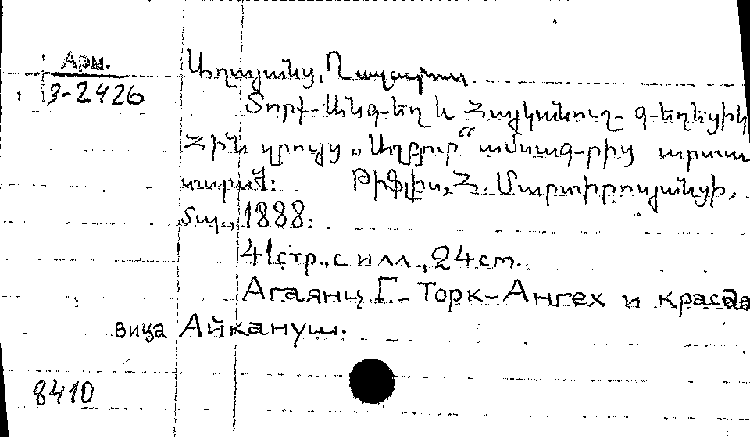 Арм.
3-2426
Աղայանց, Ղազարոս.
Տորք-Անգեղ և Հայկանուշ գեղեցիկ
Հին զրույց „Աղբյուր“ ամսագրից արտա
տպած: Թիֆլիս, Հ. Մարտիրոսյանցի,
տպ., 1888:
41стр., с илл., 24 см.
Агаянц Г. Торк-Ангех и краса
вица Айкануш.
8410